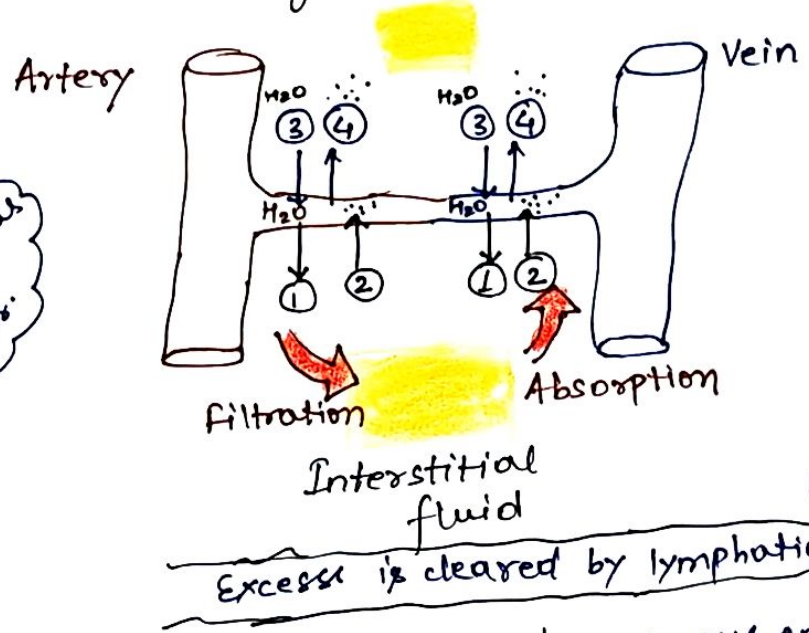 Artery
Vein
H2O H2O
3 4 3 4
H2O H2O
1 2 1 2
Filtration
Absorption
Interstitial
fluid
Excess is cleared by lymphati